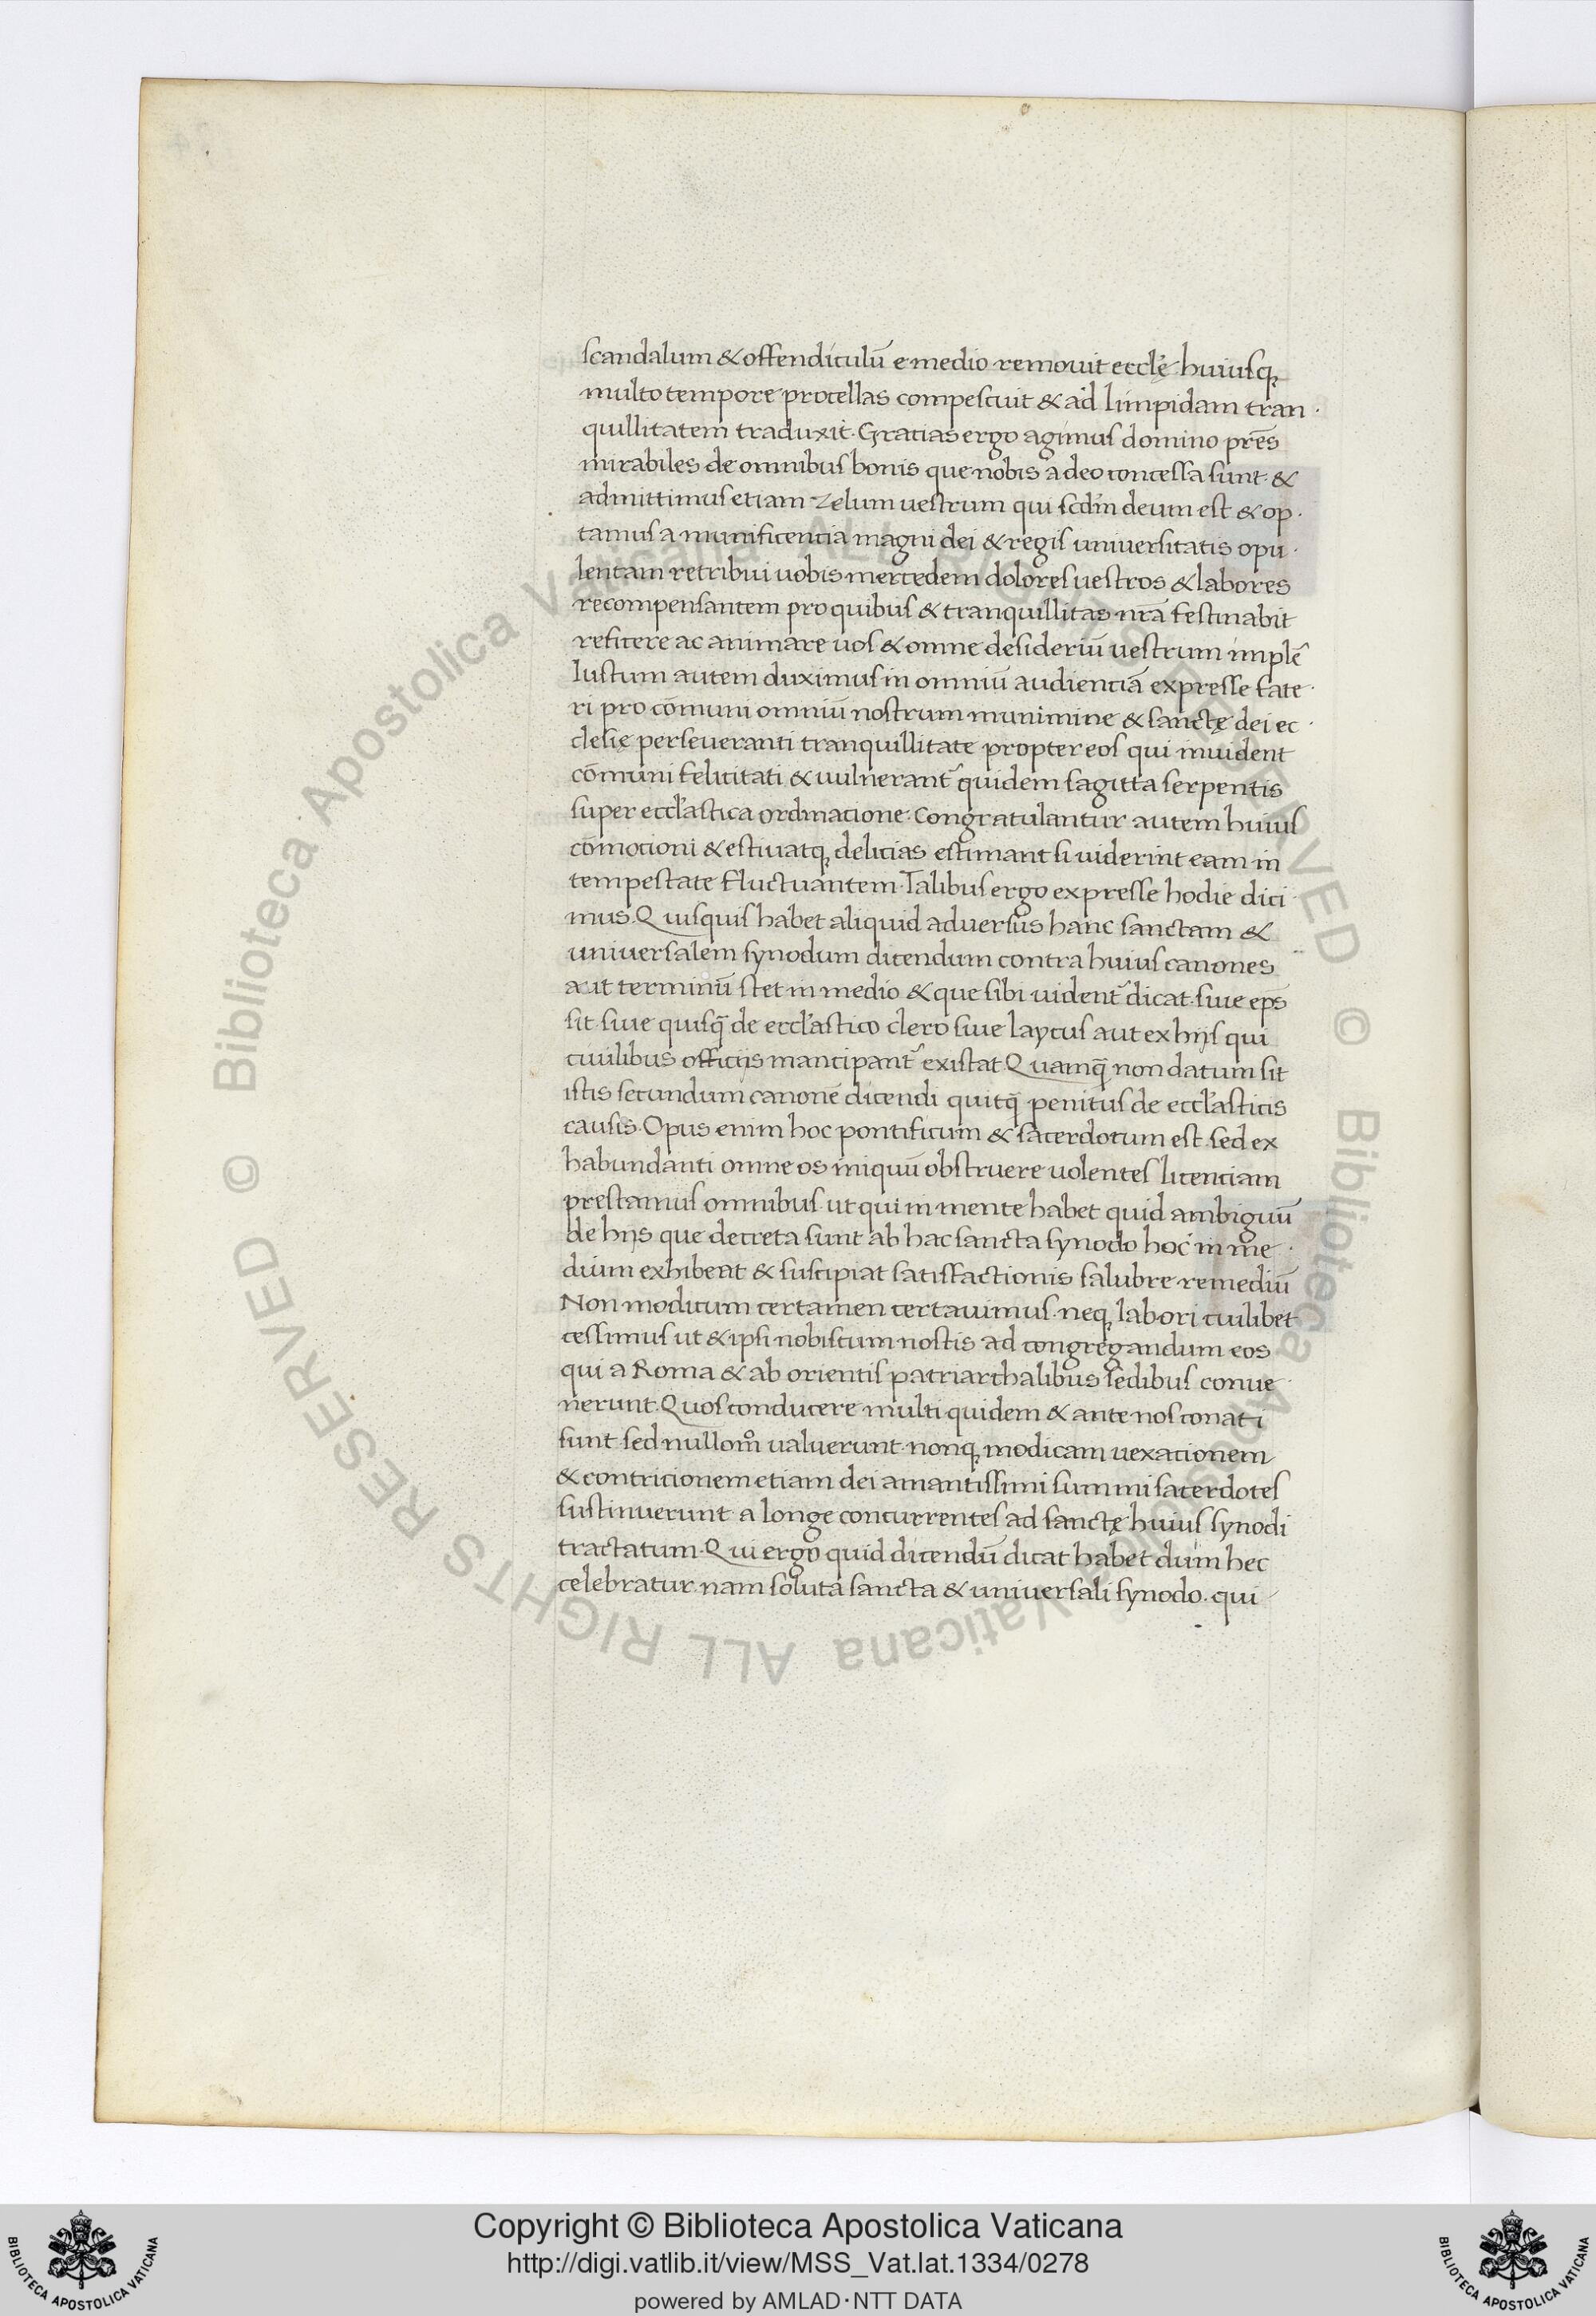 scandalum & offendiculū e medio remouit ecclę huiusq;
multo tempore procellas compescuit & ad limpidam tran·
quillitatem traduxit. Gratias ergo agimus domino pr̄es
mirabiles de omnibus bonis que nobis a deo concessa sunt. &
admittimus etiam zelum uestrum qui scdm̄ deum est & op·
tamus a munificencia magni dei & regis uniuersitatis opu·
lentam retribui uobis mercedem dolores uestros & labores
recompensantem pro quibus & tranquillitas nr̄a festinabit
reficere ac animare uos & omne desideriū uestrum implē
Iustum autem duximus in omniū audienciā expresse fate·
ri pro cōmuni omniū nostrum munimine & sanctę dei ec·
clesię perseueranti tranquillitate propter eos qui inuident
cōmuni felicitati & uulnerant᷒ quidem sagitta serpentis
super eccl'astica ordinacione. Congratulantur autem huius
cōmocioni & estiuatq; delicias estimant si uiderint eam in
tempestate fluctuantem. Talibus ergo expresse hodie dici·
mus. Quisquis habet aliquid aduersus hanc sanctam &
uniuersalem synodum dicendum contra huius canones
aut terminū stet in medio & que sibi uident᷒ dicat. siue ep̄s
sit. siue quisq̄ de eccl'astico clero siue laycus aut ex hijs qui
ciuilibus officijs mancipant᷒ existat. Quamq̄ non datum sit
istis secundum canonē dicendi quitq̄ penitus de eccl'asticis
causis. Opus enim hoc pontificum & sacerdotum est. sed ex
habundanti omne os iniquū obstruere uolentes licenciam
prestamus omnibus. ut qui in mente habet quid ambiguū
de hijs que decreta sunt ab hac sancta synodo hoc in me·
dium exhibeat & suscipiat satisfactionis salubre remediū
Non modicum certamen certauimus. neq; labori cuilibet
cessimus ut & ipsi nobiscum nostis ad congregandum eos
qui a Roma & ab orientis patriarchalibus sedibus conue·
nerunt. Quos conducere multi quidem & ante nos conati
sunt sed nullom̊ ualuerunt. nonq; modicam uexacionem
& contricionem etiam dei amantissimi summi sacerdotes
sustinuerunt a longe concurrentes ad sanctę huius synodi
tractatum. Qui ergo quid dicendū dicat habet dum hec
celebratur. nam soluta sancta & uniuersali synodo. qui
© Biblioteca Apostolica Vaticana ALL RIGHTS RESERVED © Biblioteca Apostolica Vaticana ALL RIGHTS RESERVED
Copyright © Biblioteca Apostolica Vaticana
http://digi.vatlib.it/view/MSS_Vat.lat.1334/0278
powered by AMLAD·NTT DATA
BIBLIOTECA APOSTOLICA VATICANA
BIBLIOTECA APOSTOLICA VATICANA